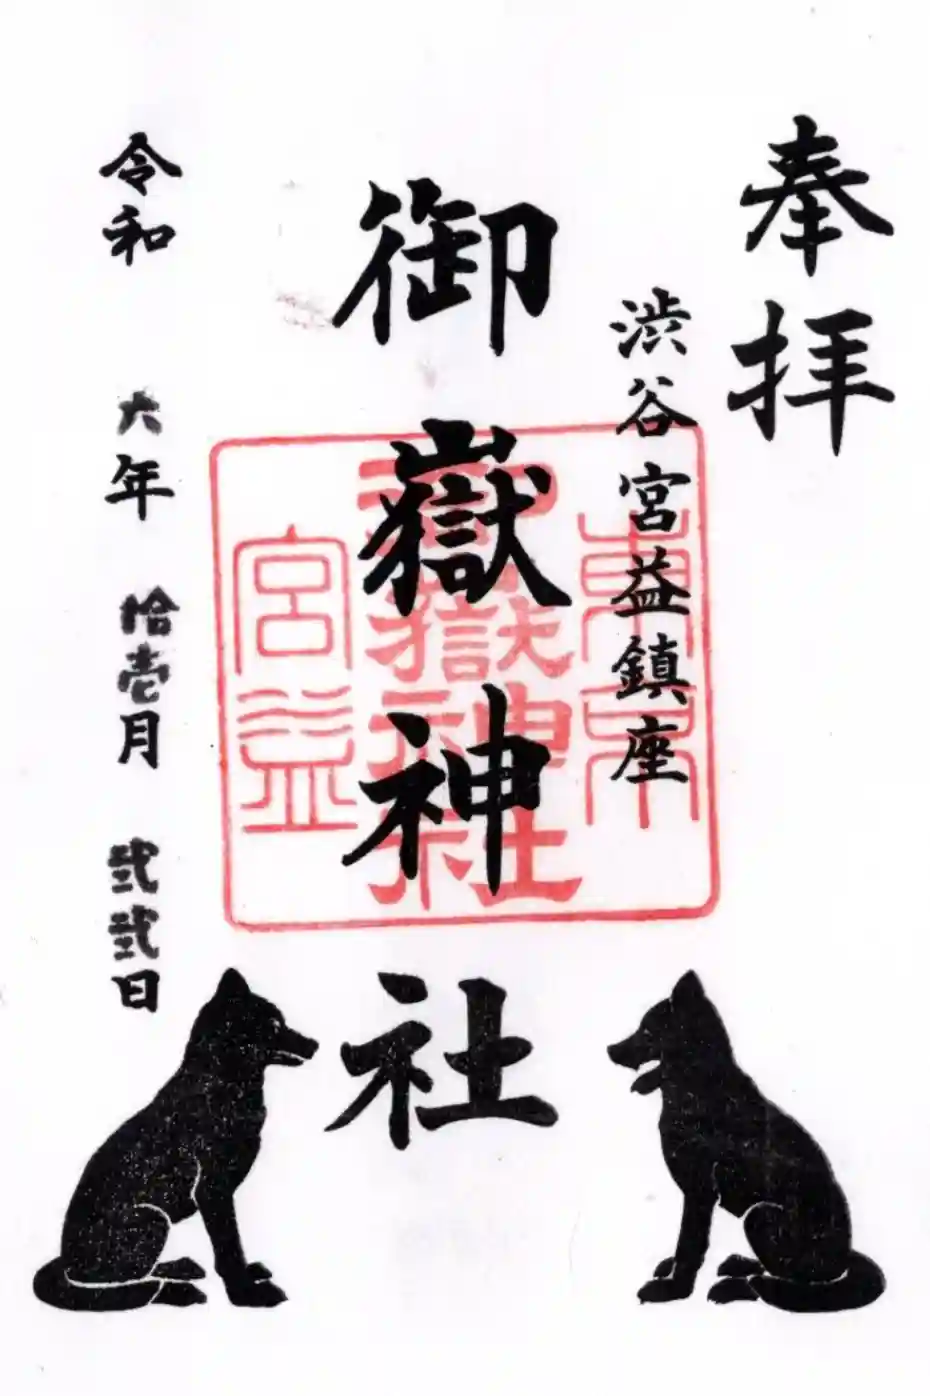 奉拝
渋谷宮益鎮座
御嶽神社
東京
御嶽神社
宮益
令和 六年 拾壱月 弐弐日